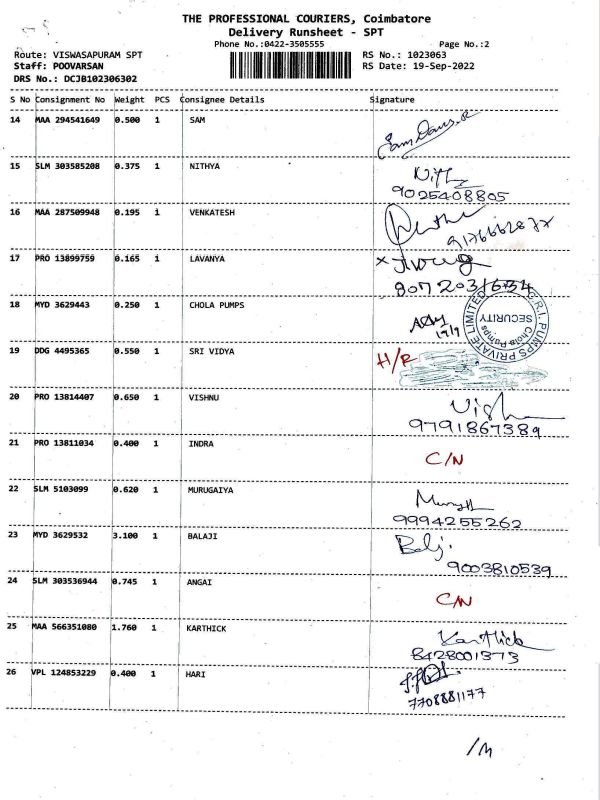 THE PROFESSIONAL COURIERS, Coimbatore
Delivery Runsheet - SPT
Phone No.:0422-3505555 Page No.:2
Route: VISWASAPURAM SPT RS No.: 1023063
Staff: POOVARSAN RS Date: 19-Sep-2022
DRS No.: DCJB102306302
S No Consignment No Weight PCS Consignee Details Signature
14 MAA 294541649 0.500 1 SAM
15 SLM 303585208 0.375 1 NITHYA
9025408805
16 MAA 287509948 0.195 1 VENKATESH
17 PRO 13899759 0.165 1 LAVANYA
807 2031634
18 MYD 3629443 0.250 1 CHOLA PUMPS
19/9
C.R.I. PUMPS PRIVATE LIMITED
SECURITY
Chola Pumps
19 DDG 4495365 0.550 1 SRI VIDYA H/R
20 PRO 13814407 0.650 1 VISHNU
9791867389
21 PRO 13811034 0.400 1 INDRA C/N
22 SLM 5103099 0.620 1 MURUGAIYA
9994255262
23 MYD 3629532 3.100 1 BALAJI Balj.
9003810539
24 SLM 303536944 0.745 1 ANGAI C/N
25 MAA 566351080 1.760 1 KARTHICK Karthick
8428001373
26 VPL 124853229 0.400 1 HARI
7708881177